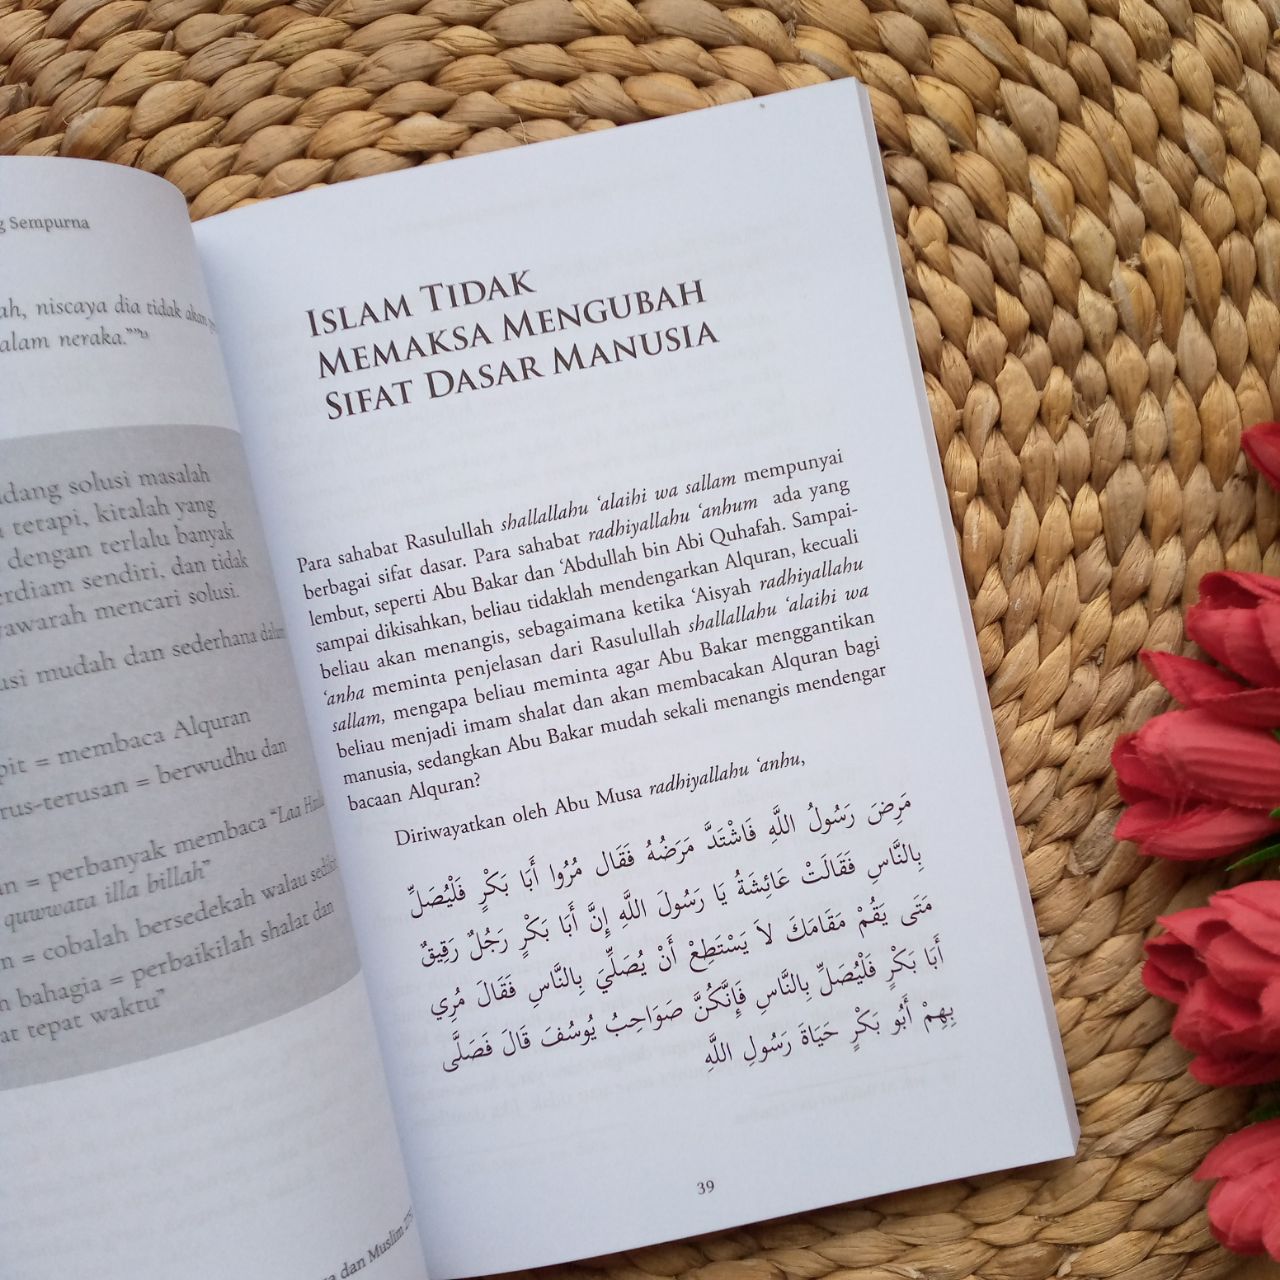 Sempurna
niscaya dia tidak akan
alam neraka.””
solusi masalah
tetapi, kitalah yang
dengan terlalu banyak
erdiam sendiri, dan tidak
mencari solusi.
mudah dan sederhana dalam
= membaca Alquran
rus-terusan = berwudhu dan
= perbanyak membaca “Laa
quwwata illa billah”
= cobalah bersedekah walau
bahagia = perbaikilah shalat dan
tepat waktu”
dan Muslim
ISLAM TIDAK
MEMAKSA MENGUBAH
SIFAT DASAR MANUSIA
Para sahabat Rasulullah shallallahu ‘alaihi wa sallam mempunyai
berbagai sifat dasar. Para sahabat radhiyallahu ‘anhum ada yang
lembut, seperti Abu Bakar dan ‘Abdullah bin Abi Quhafah. Sampai-
sampai dikisahkan, beliau tidaklah mendengarkan Alquran, kecuali
beliau akan menangis, sebagaimana ketika ‘Aisyah radhiyallahu
‘anha meminta penjelasan dari Rasulullah shallallahu ‘alaihi wa
sallam, mengapa beliau meminta agar Abu Bakar menggantikan
beliau menjadi imam shalat dan akan membacakan Alquran bagi
manusia, sedangkan Abu Bakar mudah sekali menangis mendengar
bacaan Alquran?
Diriwayatkan oleh Abu Musa radhiyallahu ‘anhu,
مَرِضَ رَسُولُ اللَّهِ فَاشْتَدَّ مَرَضُهُ فَقَال مُرُوا أَبَا بَكْرٍ فَلْيُصَلِّ
بِالنَّاسِ فَقَالَتْ عَائِشَةُ يَا رَسُولَ اللَّهِ إِنَّ أَبَا بَكْرٍ رَجُلٌ رَقِيقٌ
مَتَى يَقُمْ مَقَامَكَ لاَ يَسْتَطِعْ أَنْ يُصَلِّيَ بِالنَّاسِ فَقَالَ مُرِي
أَبَا بَكْرٍ فَلْيُصَلِّ بِالنَّاسِ فَإِنَّكُنَّ صَوَاحِبُ يُوسُفَ قَالَ فَصَلَّى
بِهِمْ أَبُو بَكْرٍ حَيَاةَ رَسُولِ اللَّهِ
39